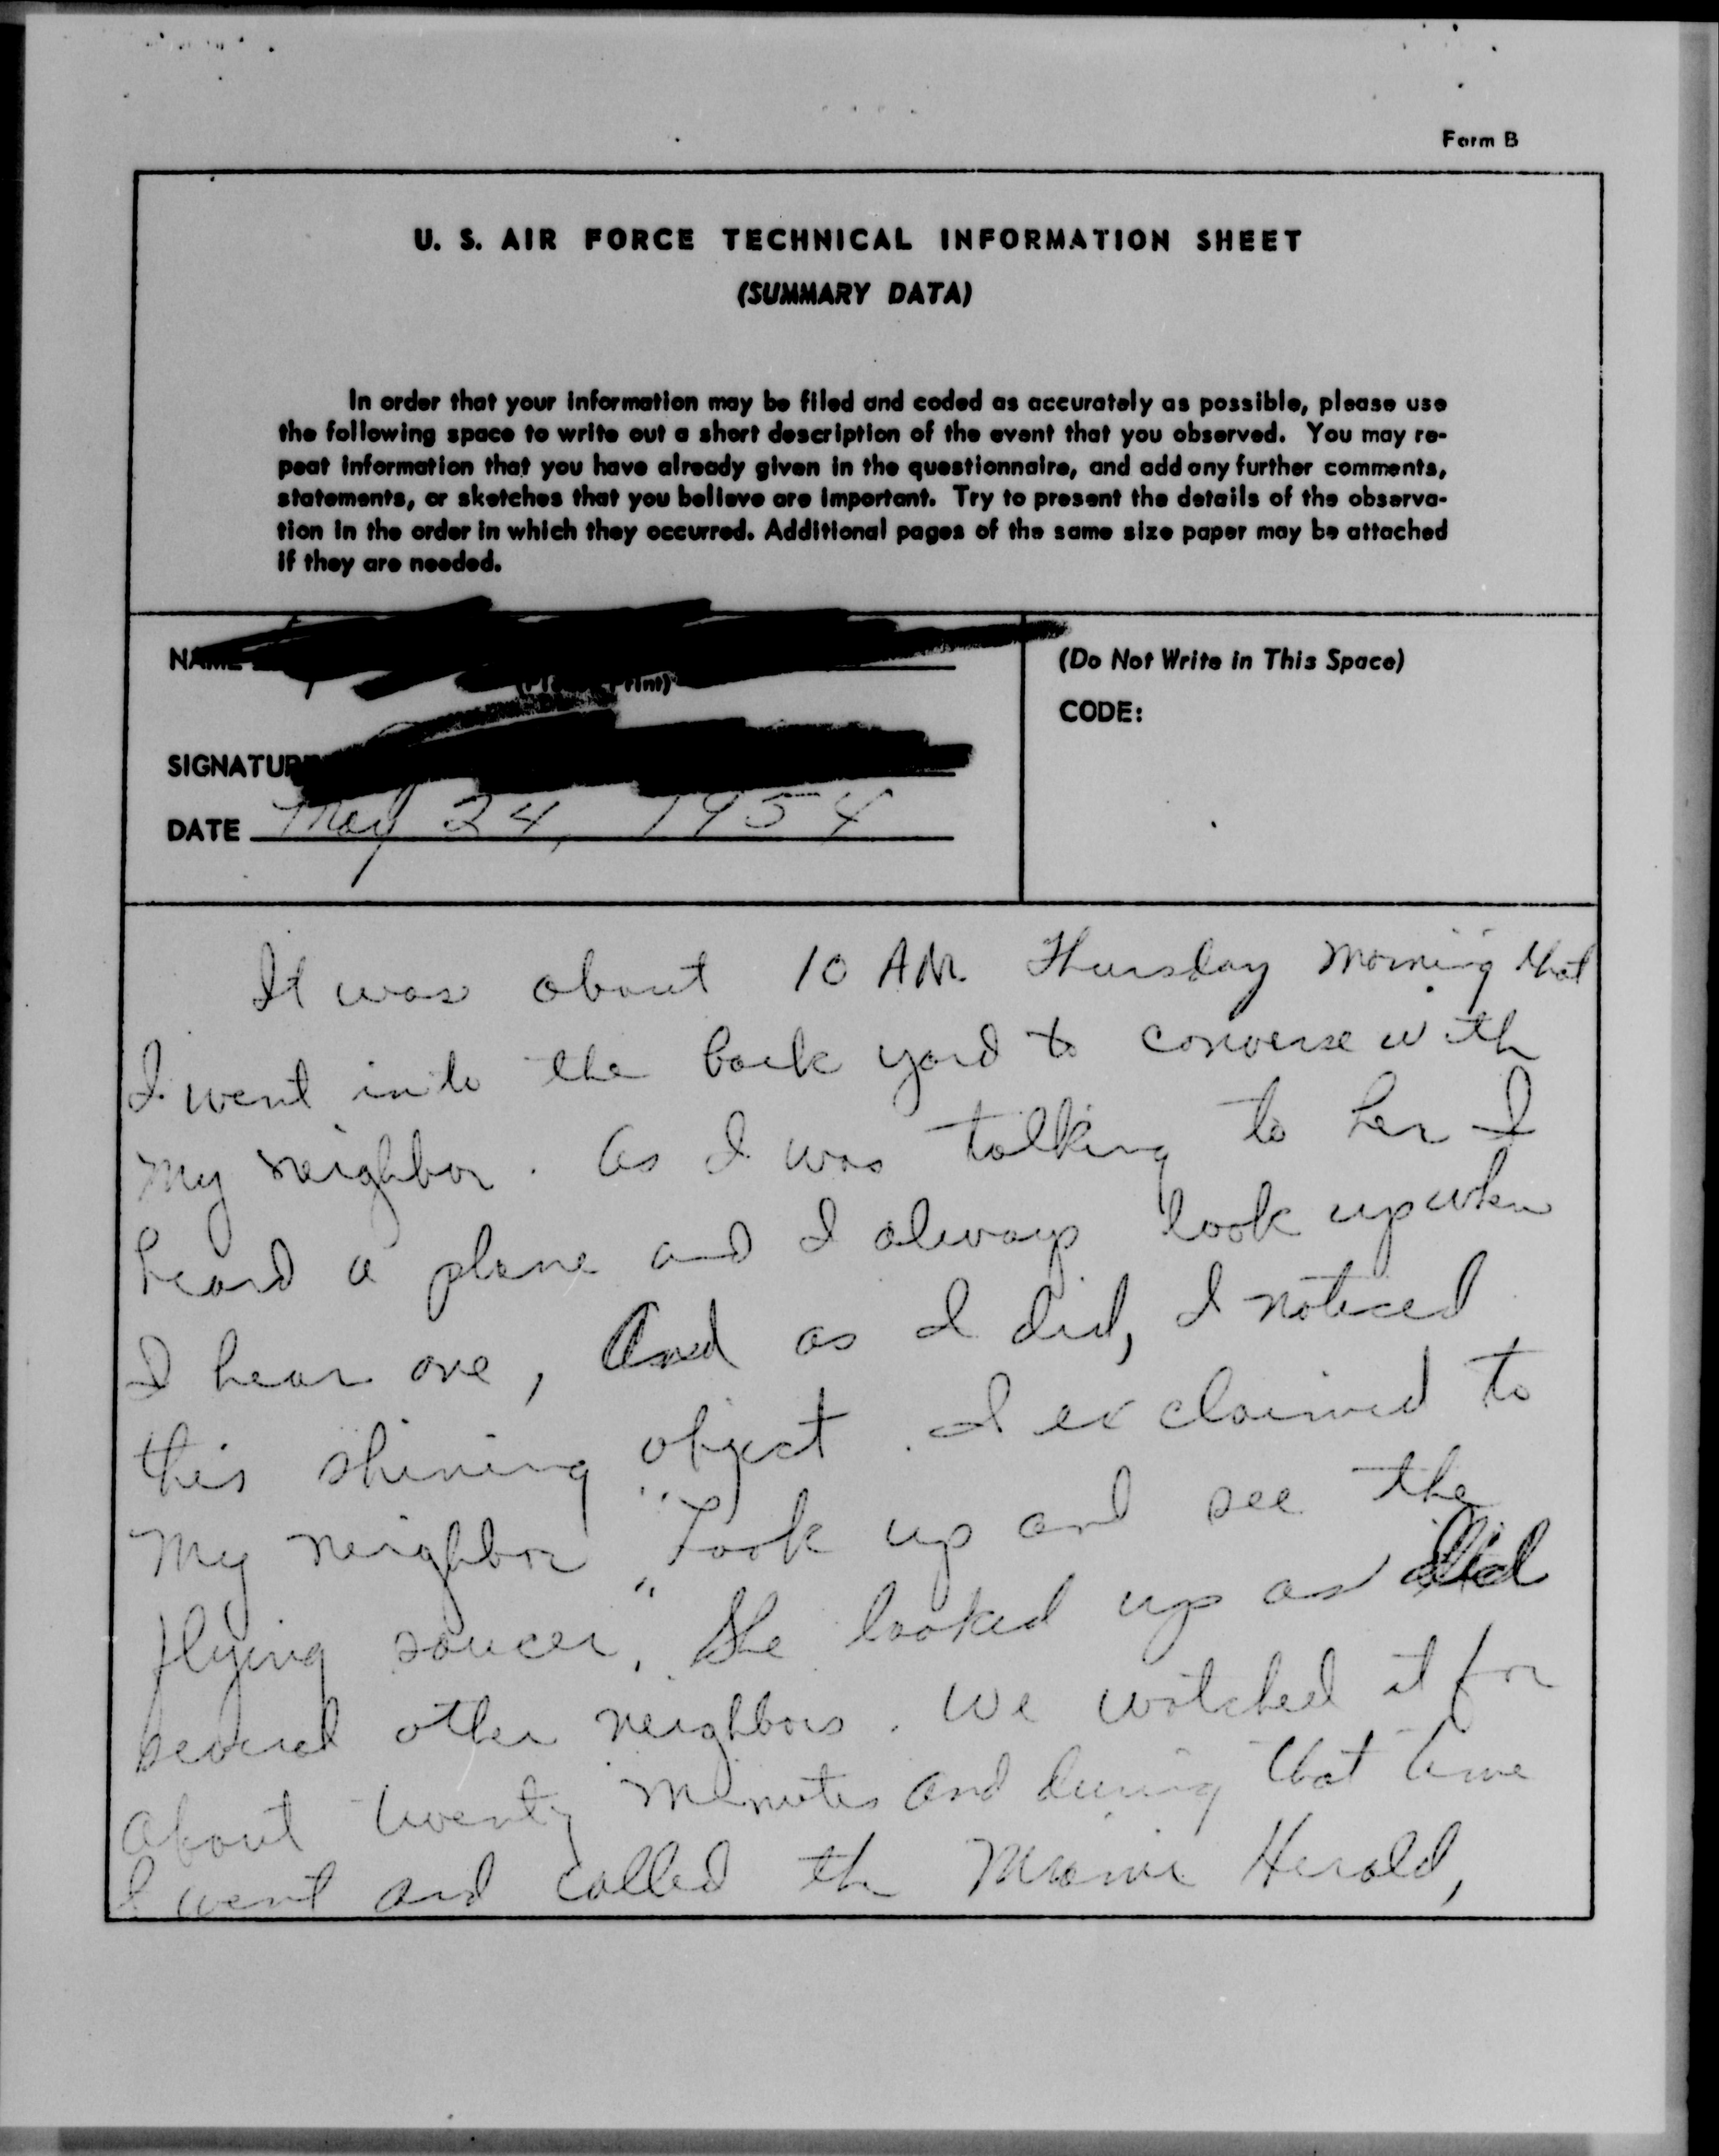 Form B
U. S. AIR FORCE TECHNICAL INFORMATION SHEET
(SUMMARY DATA)
In order that your information may be filed and coded as accurately as possible, please use
the following space to write out a short description of the event that you observed. You may re-
peat information that you have already given in the questionnaire, and add any further comments,
statements, or sketches that you believe are important. Try to present the details of the observa-
tion in the order in which they occurred. Additional pages of the same size paper may be attached
if they are needed.
NAME
SIGNATURE
DATE May 24, 1954
(Do Not Write in This Space)
CODE:
It was about 10 AM Thursday morning that
I went into the back yard to converse with
my neighbor. As I was talking to her I
heard a plane and I always look up when
I hear one, and as I did, I noticed
this shining object. I exclaimed to
my neighbor "Look up and see the
flying saucer." She looked up as did
several other neighbors. We watched it for
about twenty minutes and during that time
I went and called the Miami Herald,